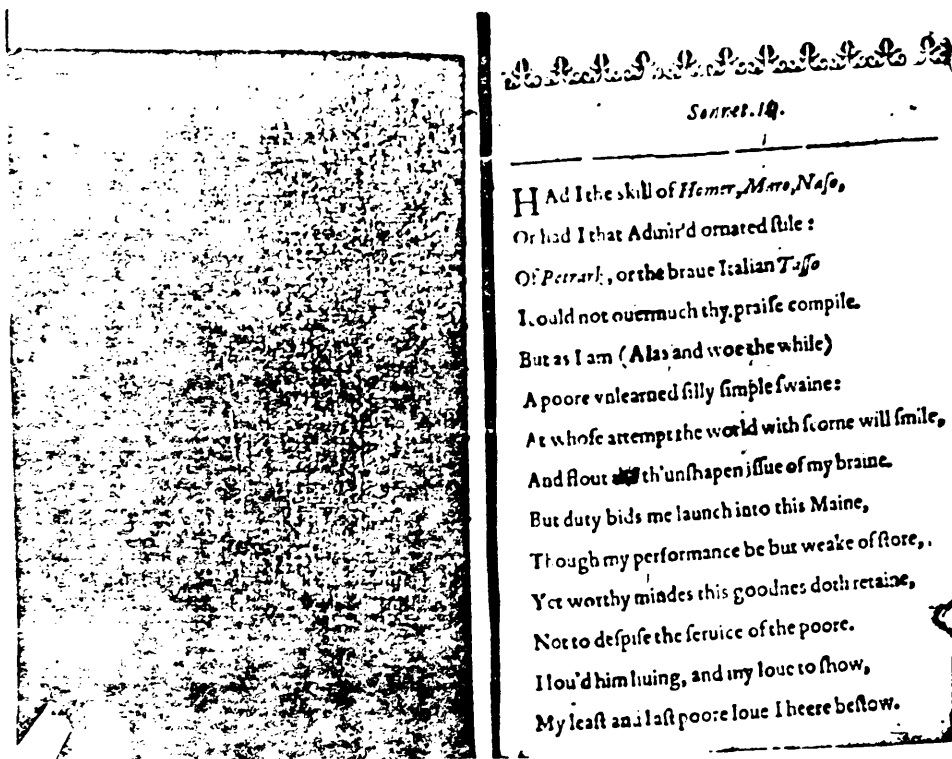 Sonnet.
HAd I the skill of Homer, Maro, Naſo,
Or had I that Admir'd ornated ſtile:
Of Petrark, or the braue Italian Taſſo
I could not ouermuch thy praiſe compile.
But as I am (Alas and woe the while)
A poore vnlearned ſilly ſimple ſwaine:
At whoſe attempt the world with ſcorne will ſmile,
And flout th'unſhapen iſſue of my braine.
But duty bids me launch into this Maine,
Though my performance be but weake of ſtore,
Yet worthy mindes this goodnes doth retaine,
Not to deſpiſe the ſeruice of the poore.
I lou'd him liuing, and my loue to ſhow,
My leaſt and laſt poore loue I heere beſtow.